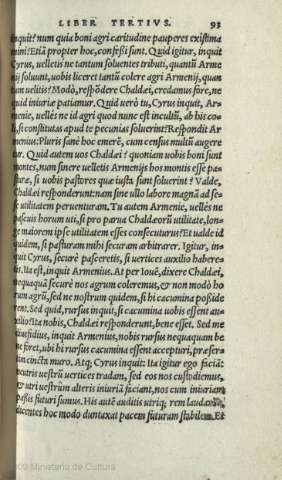 LIBER TERTIVS. 93
inquit? num quia boni agri caritudine pauperes existima
mini? Etiã propter hoc, confeßi sunt. Quid igitur, inquit
Cyrus, uelletis ne tantum soluentes tributi, quantũ Arme
nij soluunt, uobis liceret tantũ colere agri Armenij, quan
tum uelitis? Modò, respõdere Chaldęi, credamus fore, ne
quid iniuriæ patiamur. Quid uerò tu, Cyrus inquit, Ar-
menie, uellés ne id agri quod nunc est incultũ, ab his co-
li, si constitutas apud te pecunias soluerint? Respondit Ar
menius: Pluris sanè hoc emerē, cum census multũ augere
tur. Quid autem uos Chaldęi? quoniam uobis boni sunt
montes, num sinere uelletis Armenijs hos montis esse pa-
stuæ, si uobis pastores quæ iusta sunt soluerint? Valde,
Chaldęi responderunt: nam sine ullo labore magnã ad se-
se utilitatem peruenturam. Tu autem Armenie, uellés ne
pascuis horum uti, si pro parua Chaldæorũ utilitate, lon-
ge maiorem ipse utilitatem esses consecuturus? Et ualde id
quidem, si pasturam mihi securam arbitrarer. Igitur, in-
quit Cyrus, securè pasceretis, si uertices auxilio habere-
tis. Ita est, inquit Armenius. At per Iouē, dixere Chaldęi,
nequaquã securè nos agrum coleremus, & non modò ho
rum agrũ, sed ne nostrum quidem, si hi cacumina poßide
rent. Sed quid, rursus inquit, si cacumina uobis essent au-
xilio? Ita nobis, Chaldęi responderunt, bene esset. Sed me
diusfidius, inquit Armenius, nobis rursus nequaquam be
ne foret, ubi hi rursus cacumina essent accepturi, præser-
tim cincta muro. Atq; Cyrus inquit: Ita igitur ego faciã:
neutris uestrũ uertices tradam, sed eos nos custodiemus,
& utri uestrũm alteris iniuriã faciant, nos cum iniuriam
paßis futuri sumus. His autē auditis utriq; rem laudarũt,
dicentes hoc modo duntaxat pacem futuram stabilem. Et
Ministerio de Cultura